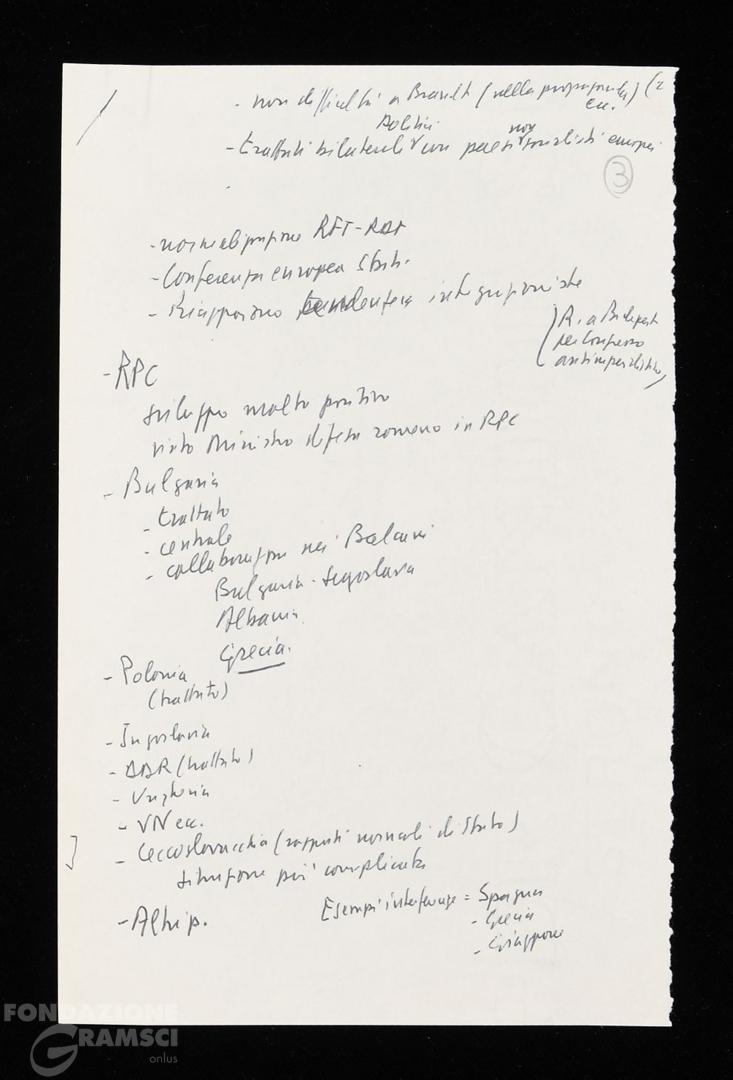 - non difficoltà a (nella propaganda) (2
ecc.
politici
- trattati bilaterali con paesi non socialisti europei
3
- normalizzazione RFT-RDT
- Conferenza europea Stati.
- Riappaiono tendenze integrazioniste
(R. a Budapest
per Congresso
antimperialista)
- RPC
sviluppo molto positivo
visita Ministro difesa romeno in RPC
- Bulgaria
- trattato
- centrale
- collaborazione nei Balcani
Bulgaria - Jugoslavia
Albania.
Grecia.
- Polonia
(trattato)
- Jugoslavia
- DDR (trattato)
- Ungheria
- VN ecc.
- Cecoslovacchia (rapporti normali di Stato)
situazione più complicata
- Altri p.
Esempi interferenze = Spagna
- Grecia
- Giappone
FONDAZIONE
GRAMSCI
onlus